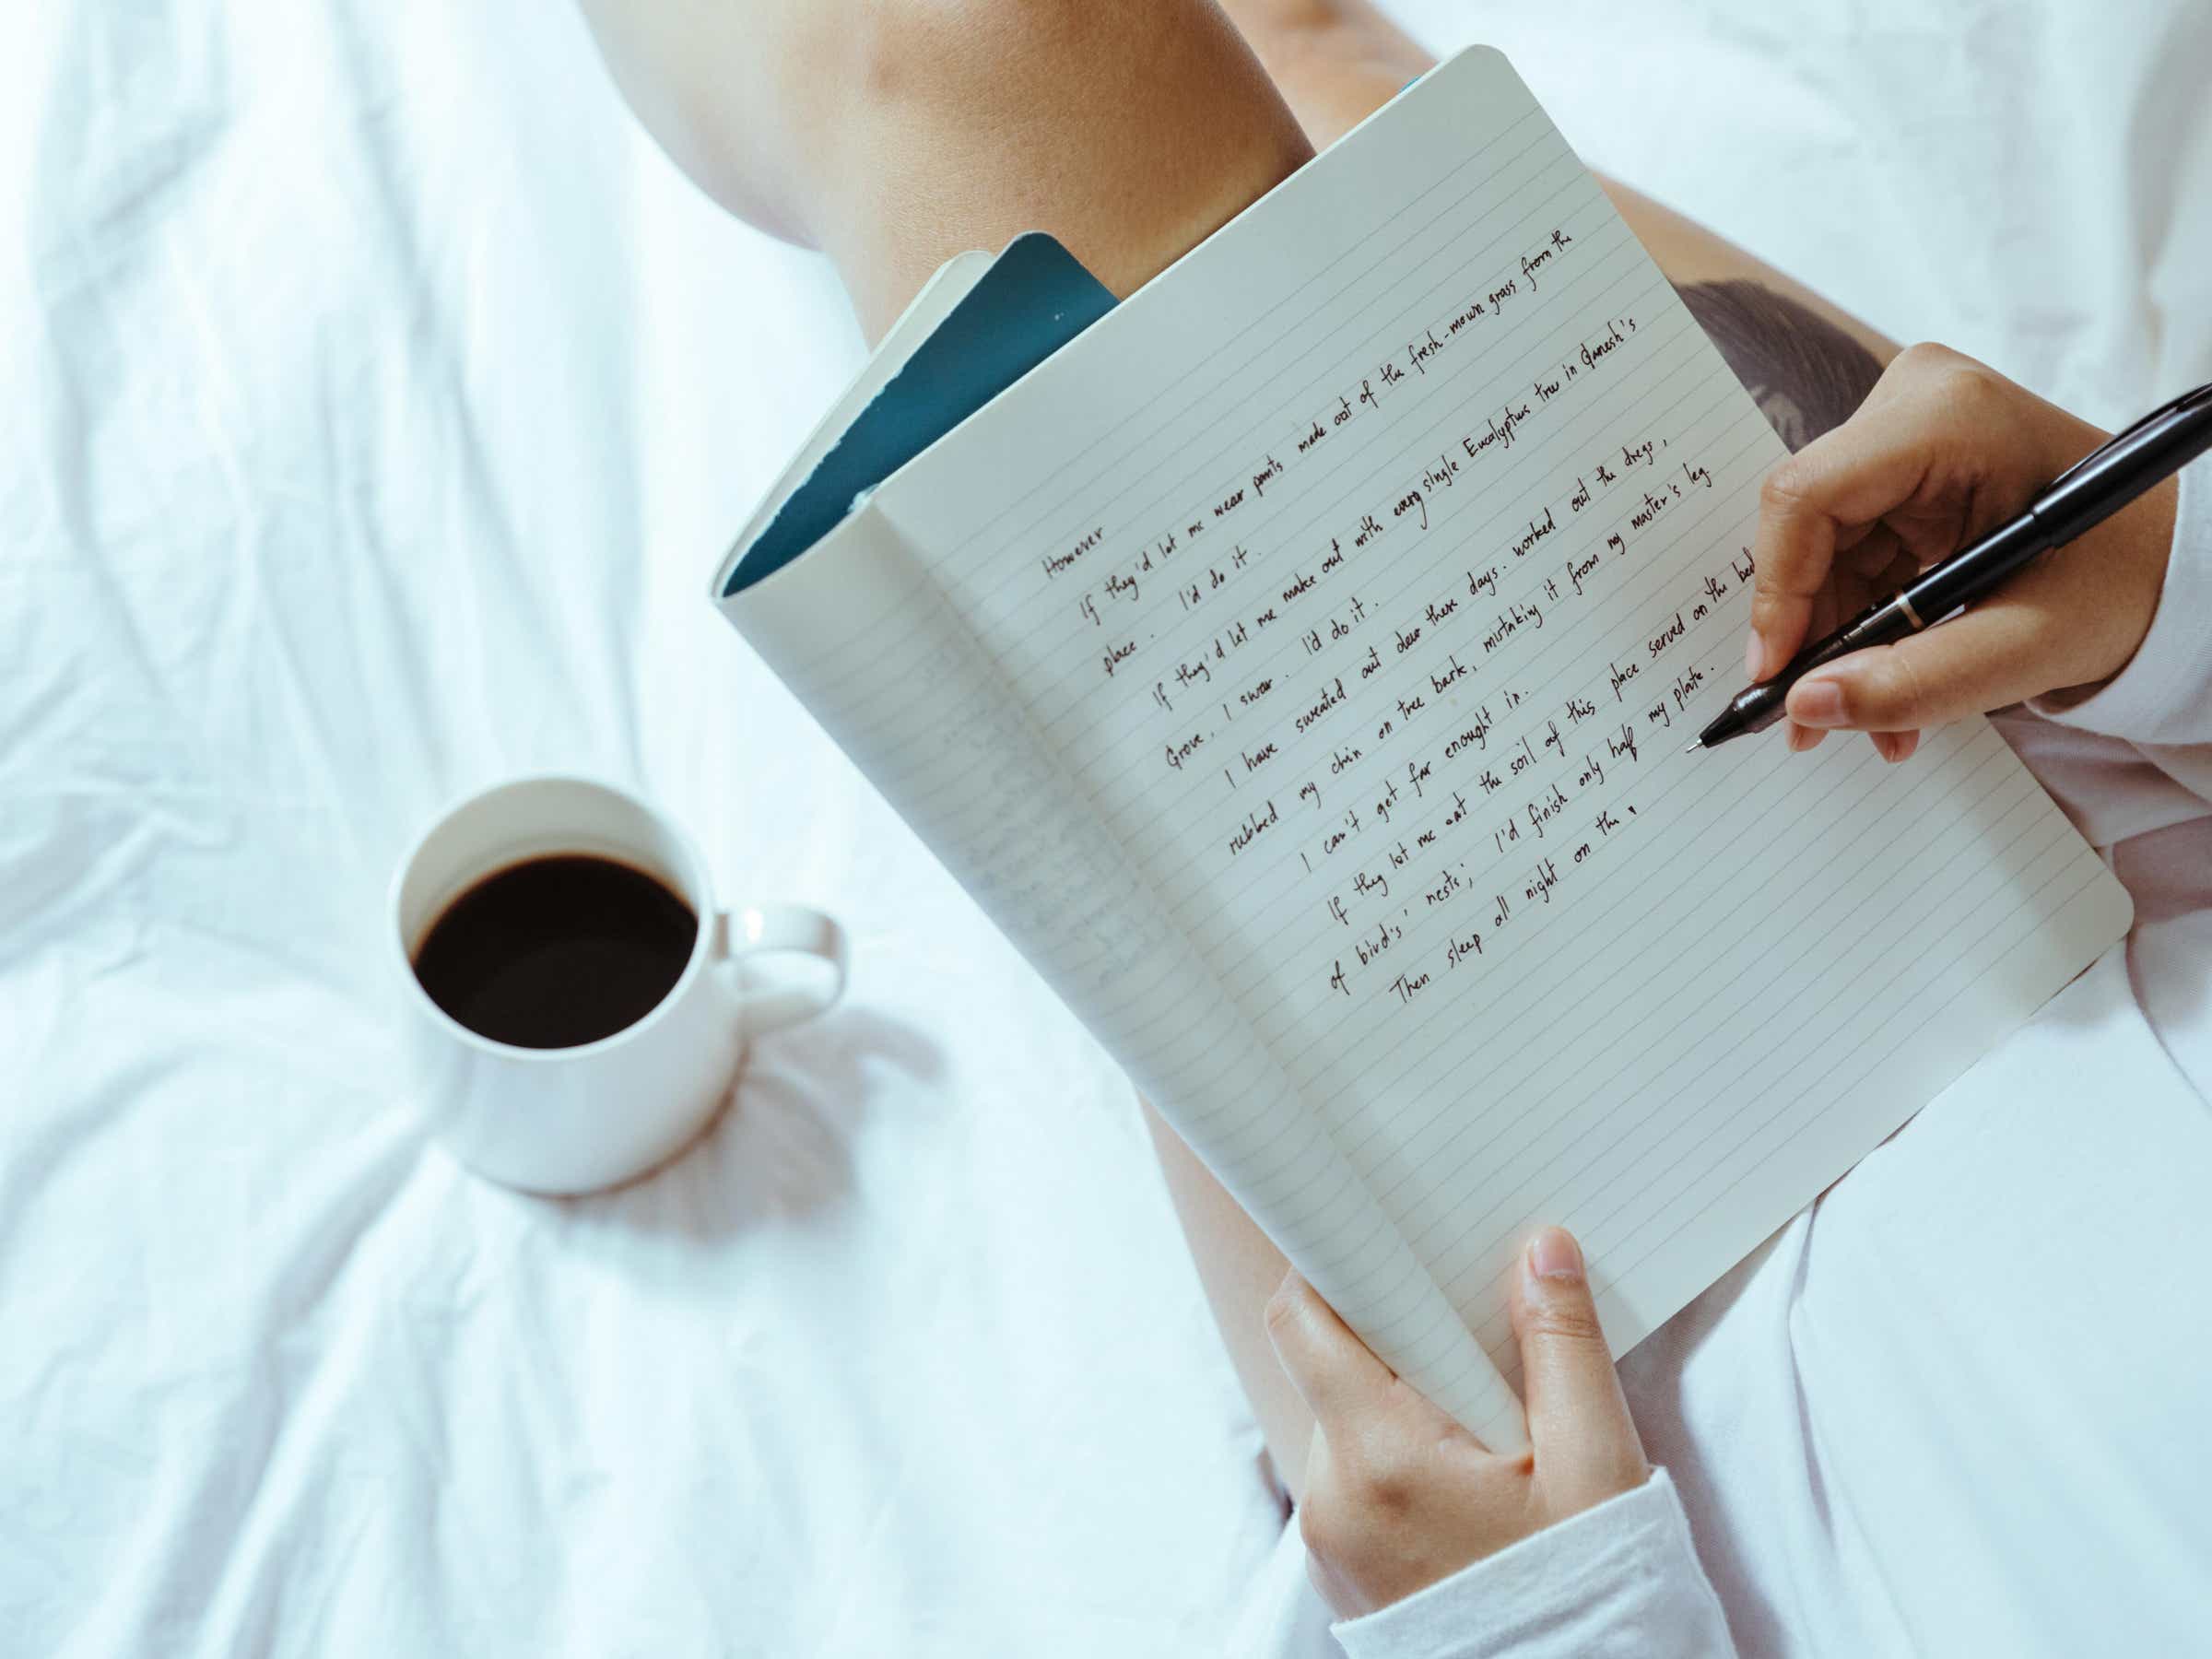 However
If they'd let me wear pants made out of the fresh-mown grass from the
place. I'd do it.
If they'd let me make out with every single Eucalyptus tree in Ganesh's
Grove, I swear. I'd do it.
I have sweated out dew these days. worked out the dregs,
rubbed my chin on tree bark, mistaking it from my master's leg.
I can't get far enought in.
If they let me eat the soil of this place served on the bed
of bird's' nests; I'd finish only half my plate.
Then sleep all night on the